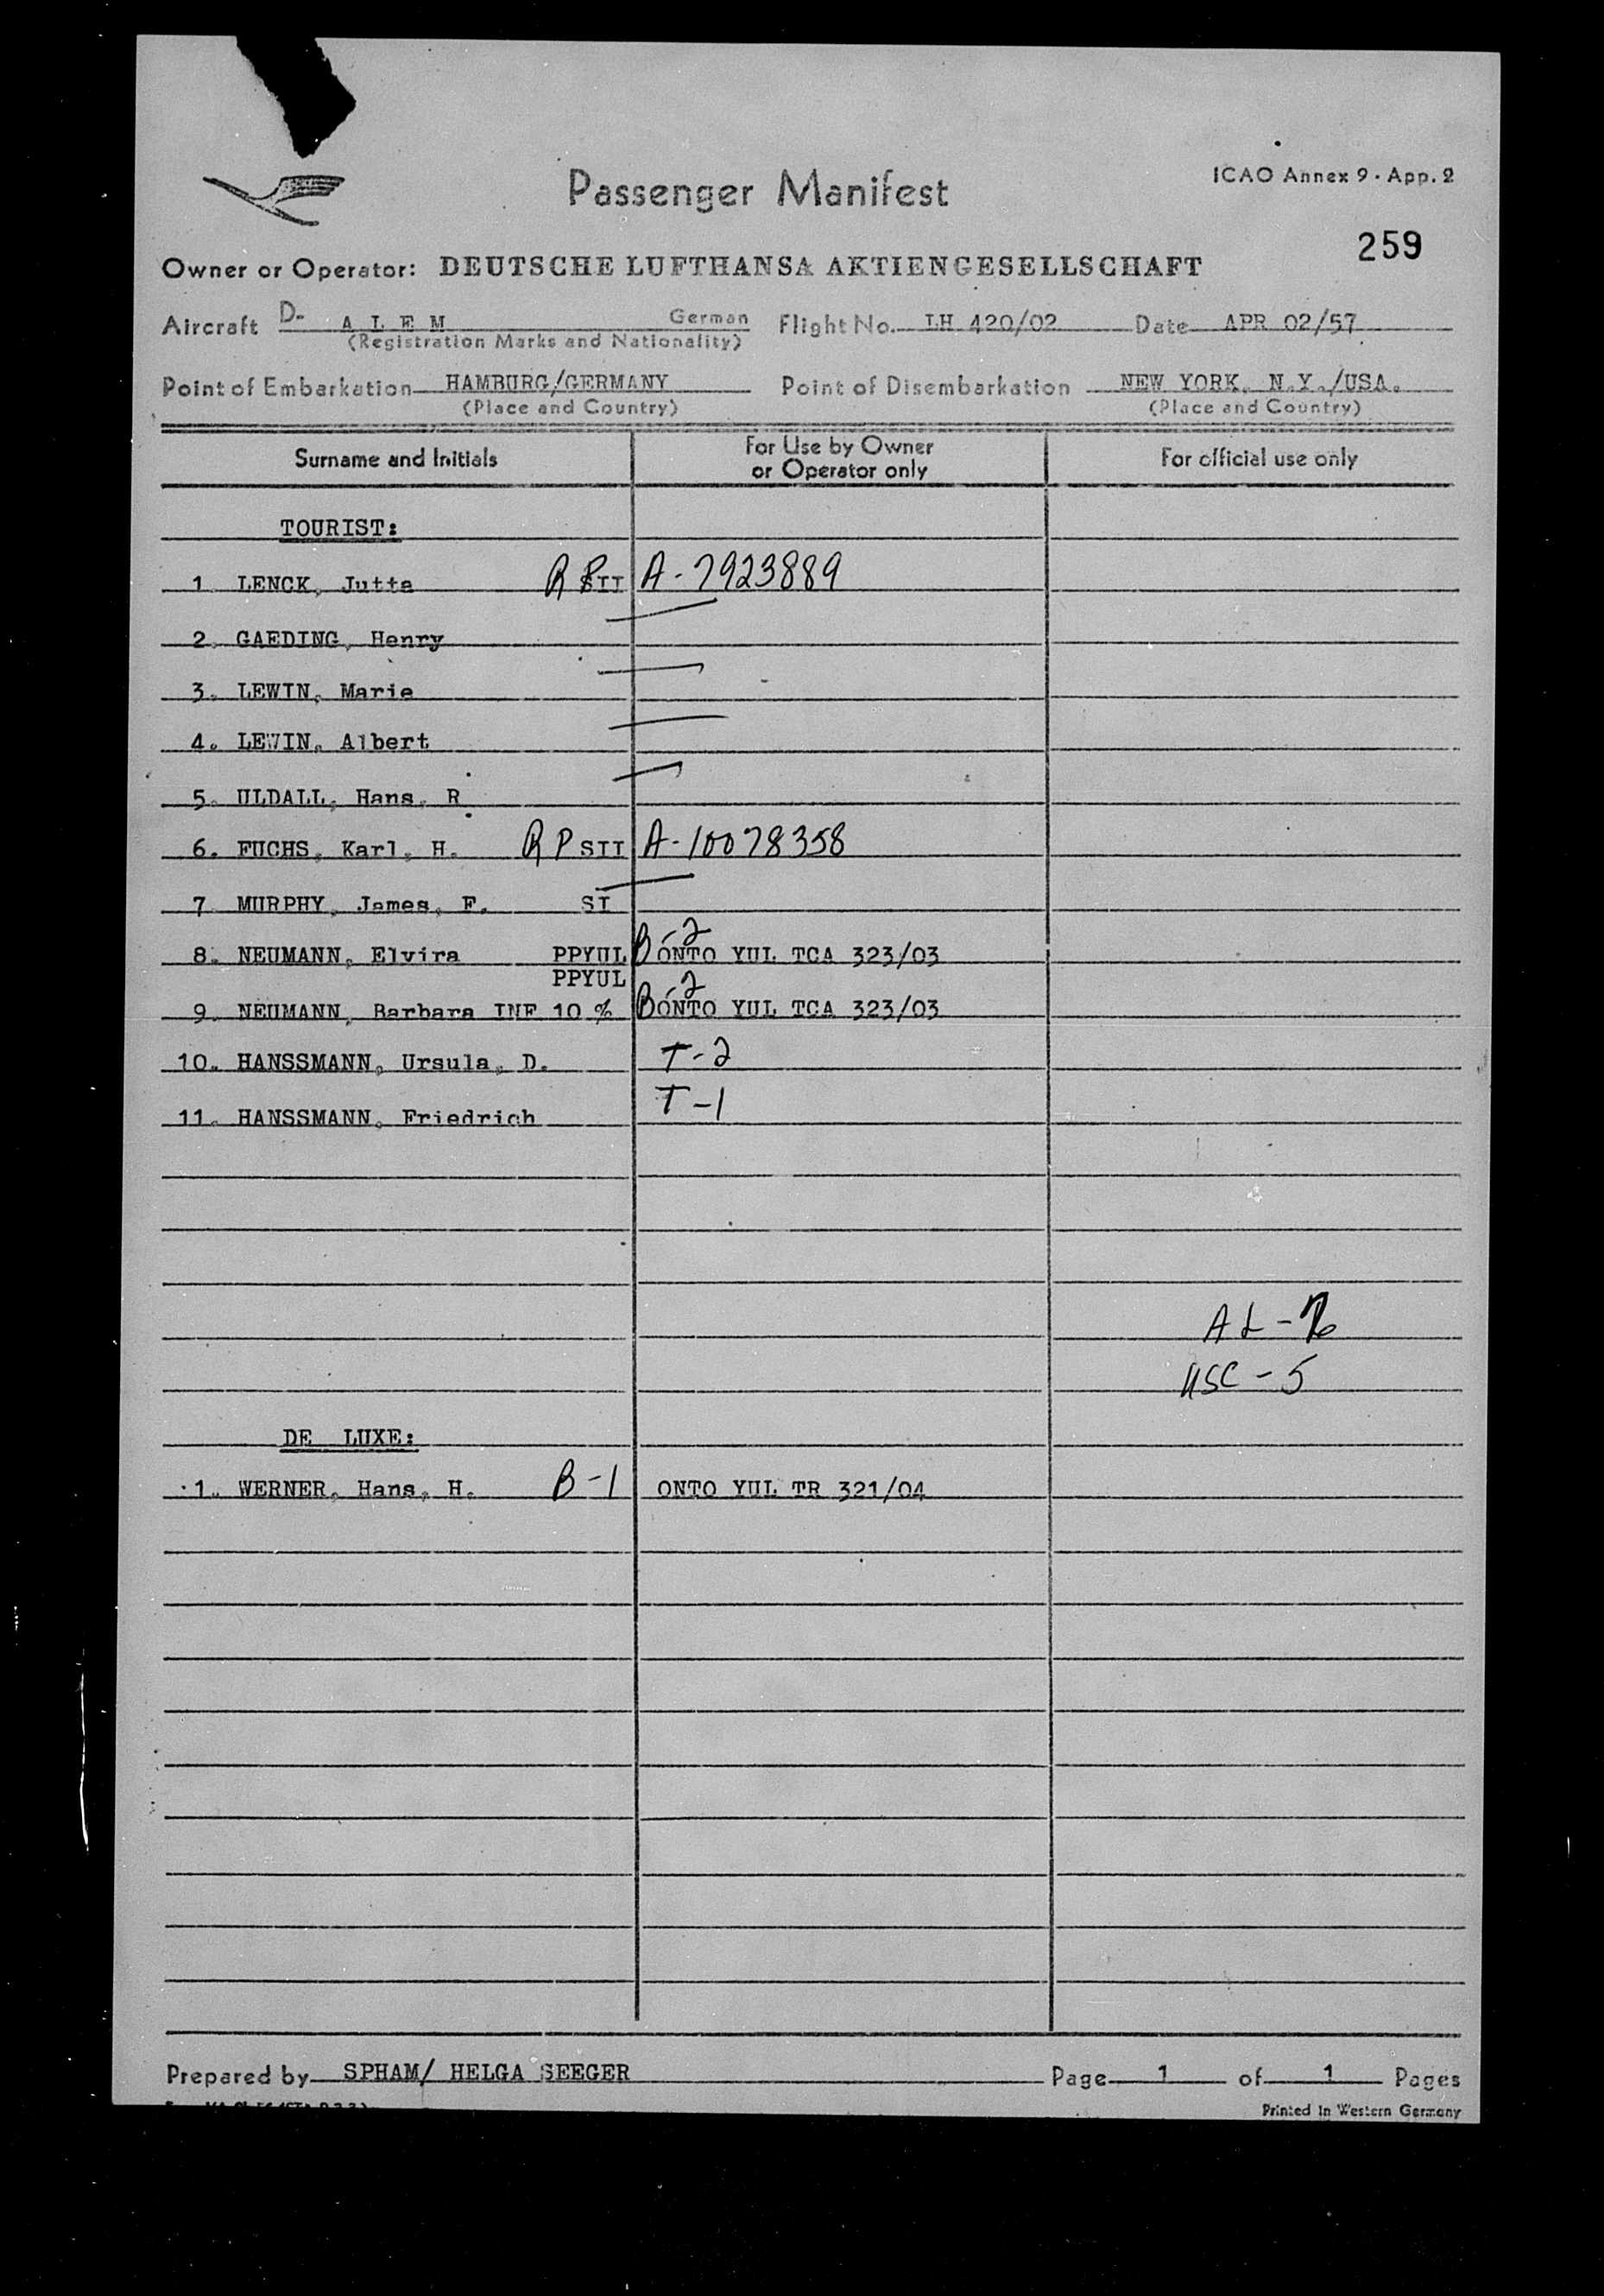 Passenger Manifest
ICAO Annex 9 - App. 2
259
Owner or Operator: DEUTSCHE LUFTHANSA AKTIENGESELLSCHAFT
Aircraft D- A L E M German Flight No. LH 420/02 Date APR 02/57
(Registration Marks and Nationality)
Point of Embarkation HAMBURG/GERMANY Point of Disembarkation NEW YORK, N.Y./USA.
(Place and Country) (Place and Country)
Surname and Initials For Use by Owner or Operator only For official use only
TOURIST:
1. LENCK, Jutta R P SII A-7923889
2. GAEDING, Henry
3. LEWIN, Marie
4. LEWIN, Albert
5. ULDALL, Hans, R.
6. FUCHS, Karl, H. R P SII A-10078358
7. MURPHY, James, F. SI
8. NEUMANN, Elvira PPYUL B-2 ONTO YUL TCA 323/03
PPYUL
9. NEUMANN, Barbara INF 10 % B-2 ONTO YUL TCA 323/03
10. HANSSMANN, Ursula, D. T-2
11. HANSSMANN, Friedrich T-1
AL-
USC-5
DE LUXE:
1. WERNER, Hans, H. B-1 ONTO YUL TR 321/04
Prepared by SPHAM/ HELGA SEEGER Page 1 of 1 Pages
Printed in Western Germany